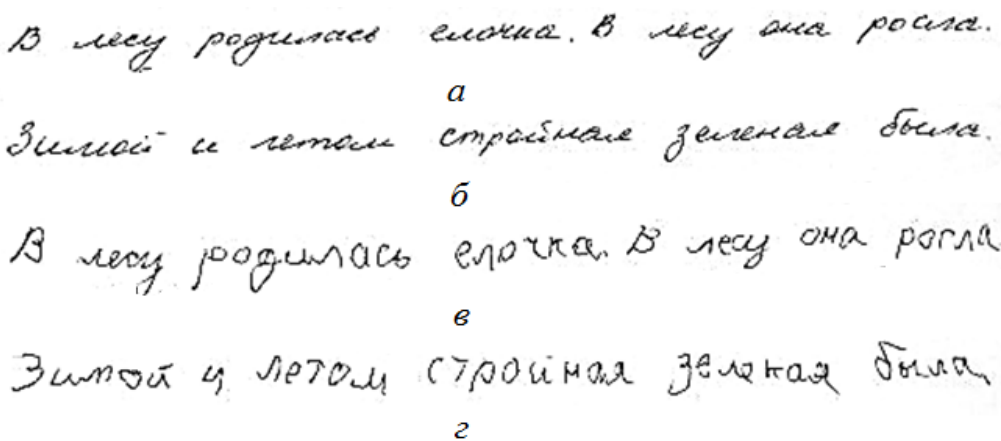 В лесу родилась елочка. В лесу она росла.
а
Зимой и летом стройная зеленая была.
б
В лесу родилась елочка. В лесу она росла
в
Зимой и летом стройная зеленая была.
г